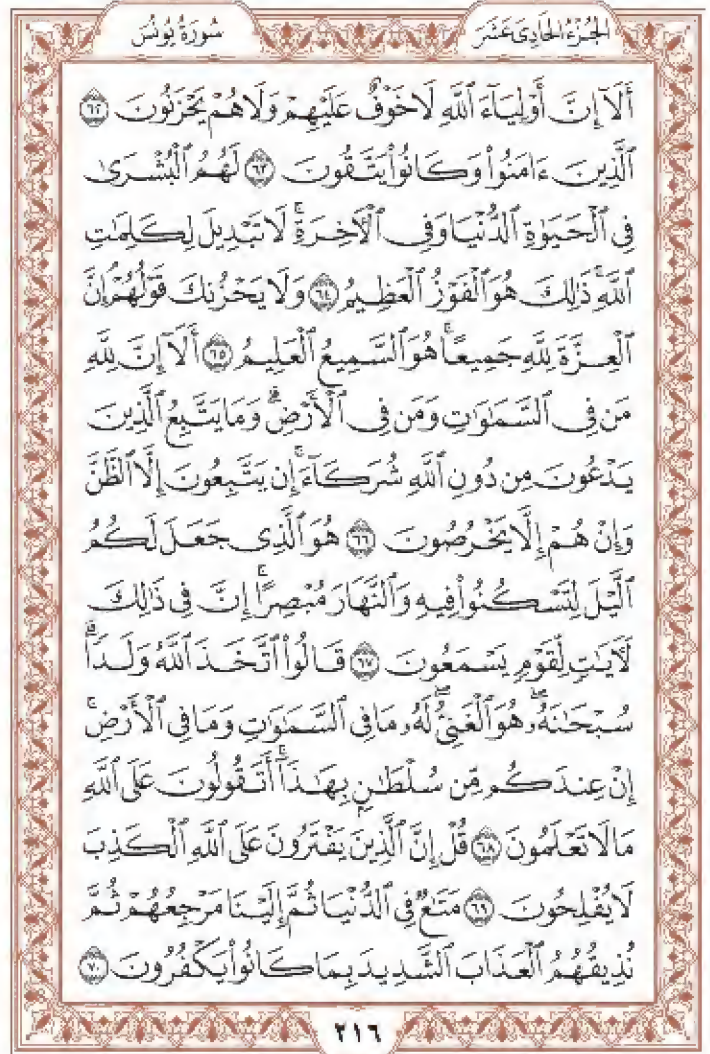 الجزء الحادي عشر
سورة يونس
أَلَآ إِنَّ أَوْلِيَآءَ ٱللَّهِ لَا خَوْفٌ عَلَيْهِمْ وَلَا هُمْ يَحْزَنُونَ ٦٢
ٱلَّذِينَ ءَامَنُوا۟ وَكَانُوا۟ يَتَّقُونَ ٦٣ لَهُمُ ٱلْبُشْرَىٰ
فِى ٱلْحَيَوٰةِ ٱلدُّنْيَا وَفِى ٱلْءَاخِرَةِ ۚ لَا تَبْدِيلَ لِكَلِمَٰتِ
ٱللَّهِ ۚ ذَٰلِكَ هُوَ ٱلْفَوْزُ ٱلْعَظِيمُ ٦٤ وَلَا يَحْزُنكَ قَوْلُهُمْ ۘ إِنَّ
ٱلْعِزَّةَ لِلَّهِ جَمِيعًا ۚ هُوَ ٱلسَّمِيعُ ٱلْعَلِيمُ ٦٥ أَلَآ إِنَّ لِلَّهِ
مَن فِى ٱلسَّمَٰوَٰتِ وَمَن فِى ٱلْأَرْضِ ۗ وَمَا يَتَّبِعُ ٱلَّذِينَ
يَدْعُونَ مِن دُونِ ٱللَّهِ شُرَكَآءَ ۚ إِن يَتَّبِعُونَ إِلَّا ٱلظَّنَّ
وَإِنْ هُمْ إِلَّا يَخْرُصُونَ ٦٦ هُوَ ٱلَّذِى جَعَلَ لَكُمُ
ٱلَّيْلَ لِتَسْكُنُوا۟ فِيهِ وَٱلنَّهَارَ مُبْصِرًا ۚ إِنَّ فِى ذَٰلِكَ
لَءَايَٰتٍ لِّقَوْمٍ يَسْمَعُونَ ٦٧ قَالُوا۟ ٱتَّخَذَ ٱللَّهُ وَلَدًا ۗ
سُبْحَٰنَهُۥ ۖ هُوَ ٱلْغَنِىُّ ۖ لَهُۥ مَا فِى ٱلسَّمَٰوَٰتِ وَمَا فِى ٱلْأَرْضِ ۚ
إِنْ عِندَكُم مِّن سُلْطَٰنٍۭ بِهَٰذَآ ۚ أَتَقُولُونَ عَلَى ٱللَّهِ
مَا لَا تَعْلَمُونَ ٦٨ قُلْ إِنَّ ٱلَّذِينَ يَفْتَرُونَ عَلَى ٱللَّهِ ٱلْكَذِبَ
لَا يُفْلِحُونَ ٦٩ مَتَٰعٌ فِى ٱلدُّنْيَا ثُمَّ إِلَيْنَا مَرْجِعُهُمْ ثُمَّ
نُذِيقُهُمُ ٱلْعَذَابَ ٱلشَّدِيدَ بِمَا كَانُوا۟ يَكْفُرُونَ ٧٠
٢١٦